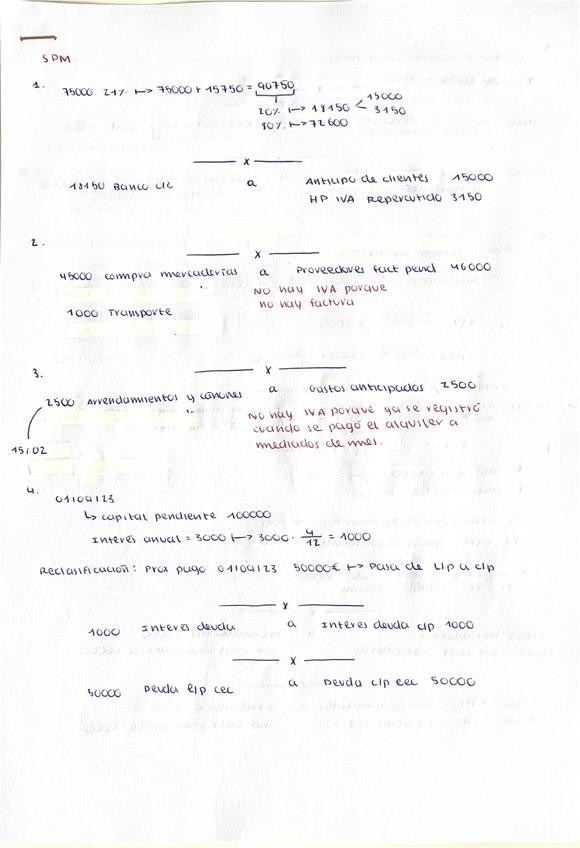 SPM
1. 75000 21% ↦ 75000 + 15750 = 90750
20% ↦ 18150 < 15000
3150
80% ↦ 72600
x
18150 Banco c/c a Anticipo de clientes 15000
HP IVA Repercutido 3150
2.
x
45000 compra mercaderías a Proveedores fact pend 46000
No hay IVA porque
no hay factura
1000 Transporte
3.
x
2500 Arrendamientos y cánones a Gastos anticipados 2500
No hay IVA porque ya se registró
cuando se pagó el alquiler a
mediados de mes.
15/02
4.
01/04/23
↳ capital pendiente 100000
Interés anual = 3000 ↦ 3000 · 4/12 = 1000
Reclasificación: Prox pago 01/04/23 50000€ ↦ Pasa de L/p a c/p
x
1000 Interés deuda a Interés deuda c/p 1000
x
50000 Deuda l/p cec a Deuda c/p eec 50000